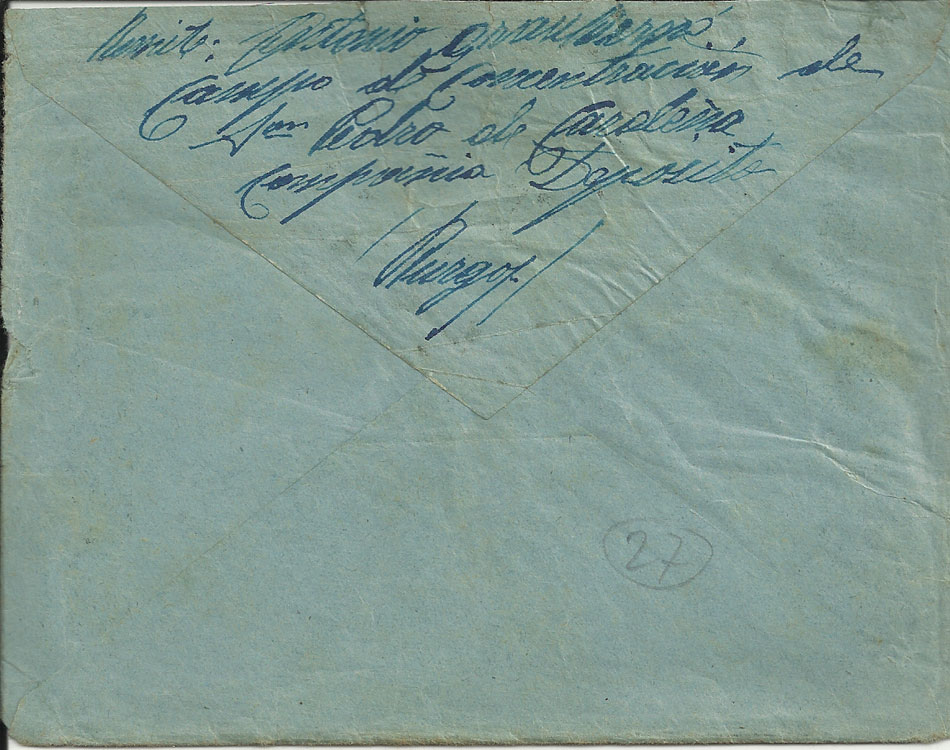 Remite: Antonio Grau Barga
Campo de Concentración de
San Pedro de Cardeña
Compañia Deposito
(Burgos)
27